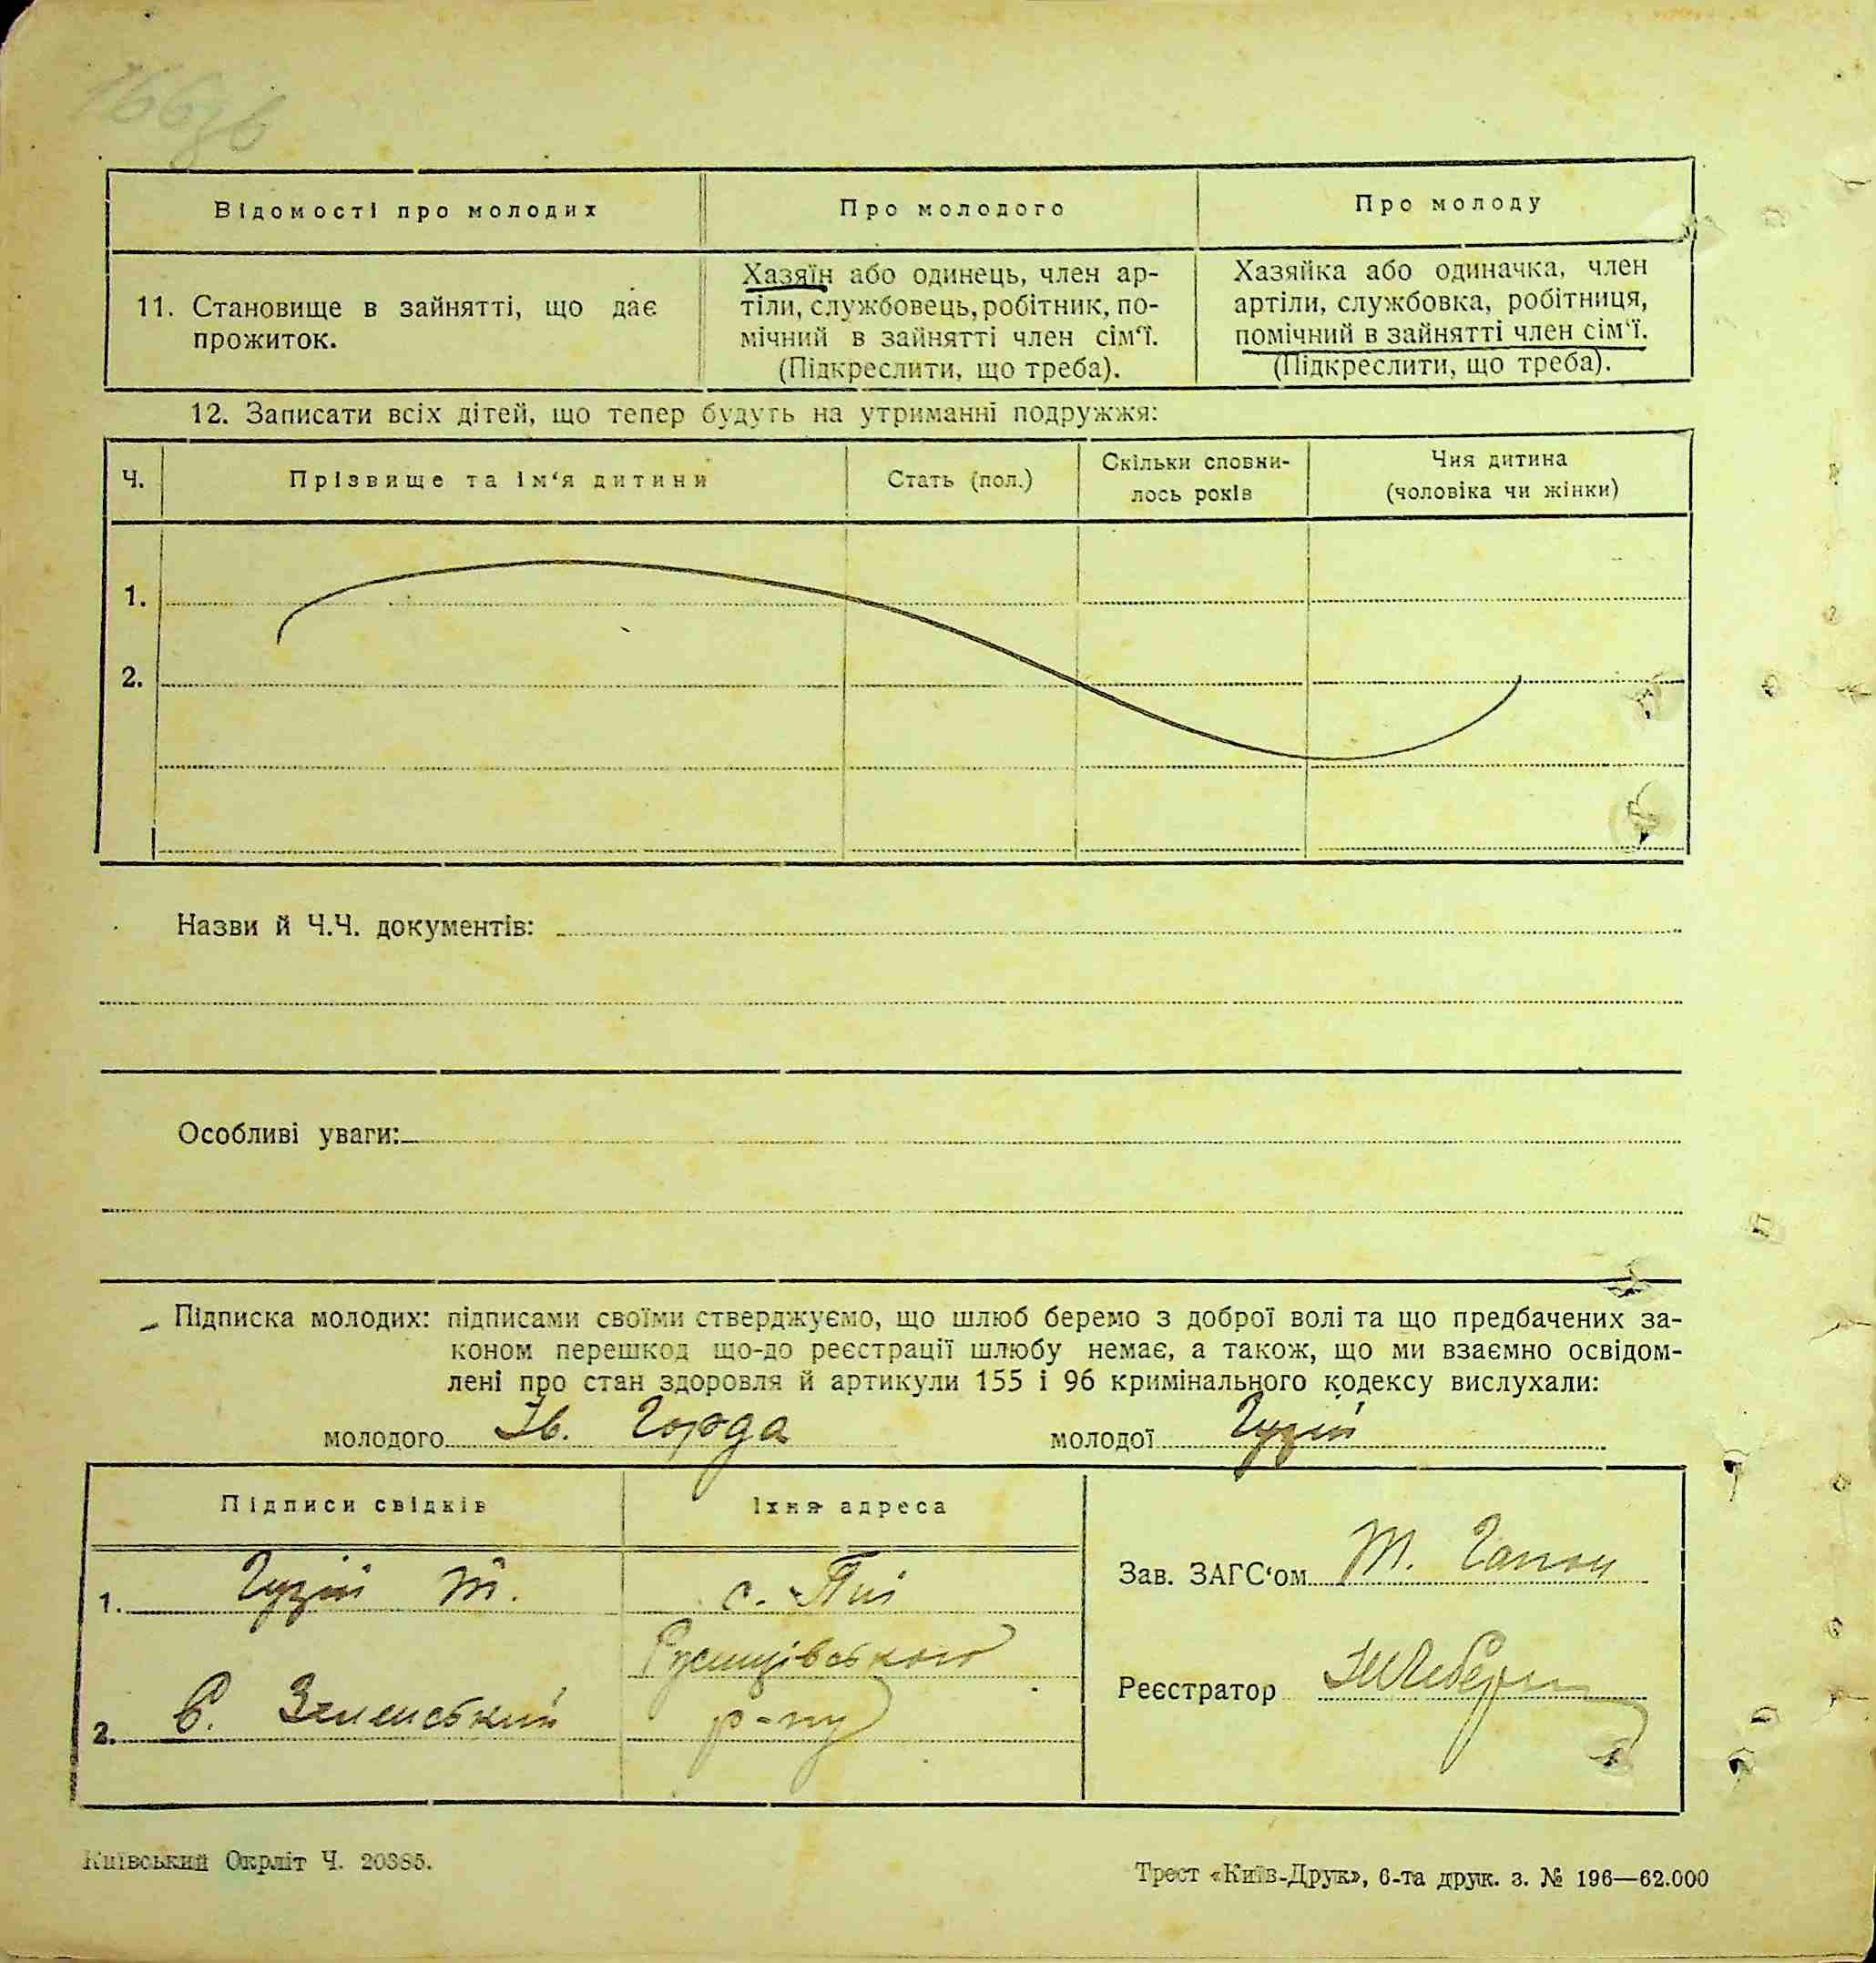 166зв
Відомості про молодих
Про молодого
Про молоду
11. Становище в зайнятті, що дає
прожиток.
Хазяїн або одинець, член ар-
тіли, службовець, робітник, по-
мічний в зайнятті член сім‘ї.
(Підкреслити, що треба).
Хазяйка або одиначка, член
артіли, службовка, робітниця,
помічний в зайнятті член сім‘ї.
(Підкреслити, що треба).
12. Записати всіх дітей, що тепер будуть на утриманні подружжя:
Ч.
Прізвище та ім‘я дитини
Стать (пол.)
Скільки сповни-
лось років
Чия дитина
(чоловіка чи жінки)
1.
2.
Назви й Ч.Ч. документів:
Особливі уваги:
Підписка молодих: підписами своїми стверджуємо, що шлюб беремо з доброї волі та що предбачених за-
коном перешкод що-до реєстрації шлюбу немає, а також, що ми взаємно освідом-
лені про стан здоровля й артикули 155 і 96 кримінального кодексу вислухали:
молодого Ів. Горда молодої Гузій
Підписи свідків
Їхня адреса
1. Гузій Т.
с. Пії
2. Є. Зеленський
р-ну
Зав. ЗАГС‘ом Т. Гапон
Реєстратор
Київський Окрліт Ч. 20385.
Трест «Київ-Друк», 6-та друк. з. № 196—62.000